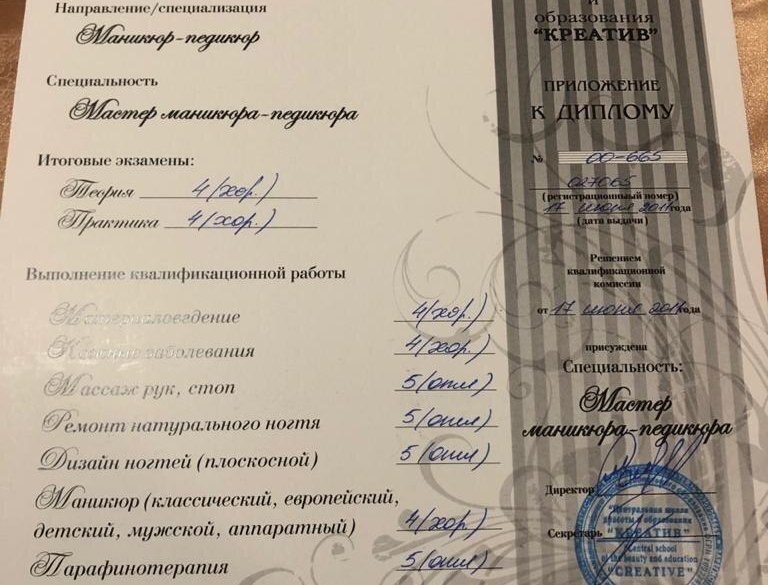 Направление/специализация
Маникюр-педикюр
Специальность
Мастер маникюра-педикюра
Итоговые экзамены:
Теория 4 (хор.)
Практика 4 (хор.)
Выполнение квалификационной работы
Материаловедение 4 (хор.)
Кожные заболевания 4 (хор.)
Массаж рук, стоп 5 (отл)
Ремонт натурального ногтя 5 (отл)
Дизайн ногтей (плоскостной) 5 (отл)
Маникюр (классический, европейский,
детский, мужской, аппаратный) 4 (хор.)
Парафинотерапия 5 (отл)
и
образования
"КРЕАТИВ"
ПРИЛОЖЕНИЕ
К ДИПЛОМУ
№ 00-665
027065
(регистрационный номер)
17 июня года
(дата выдачи)
Решением
квалификационной
комиссии
от 17 июня года
присуждена
Специальность:
Мастер
маникюра-педикюра
Директор
Секретарь
"Центральная школа
красоты и образования
"КРЕАТИВ"
Central school
of the beauty and education
"CREATIVE"